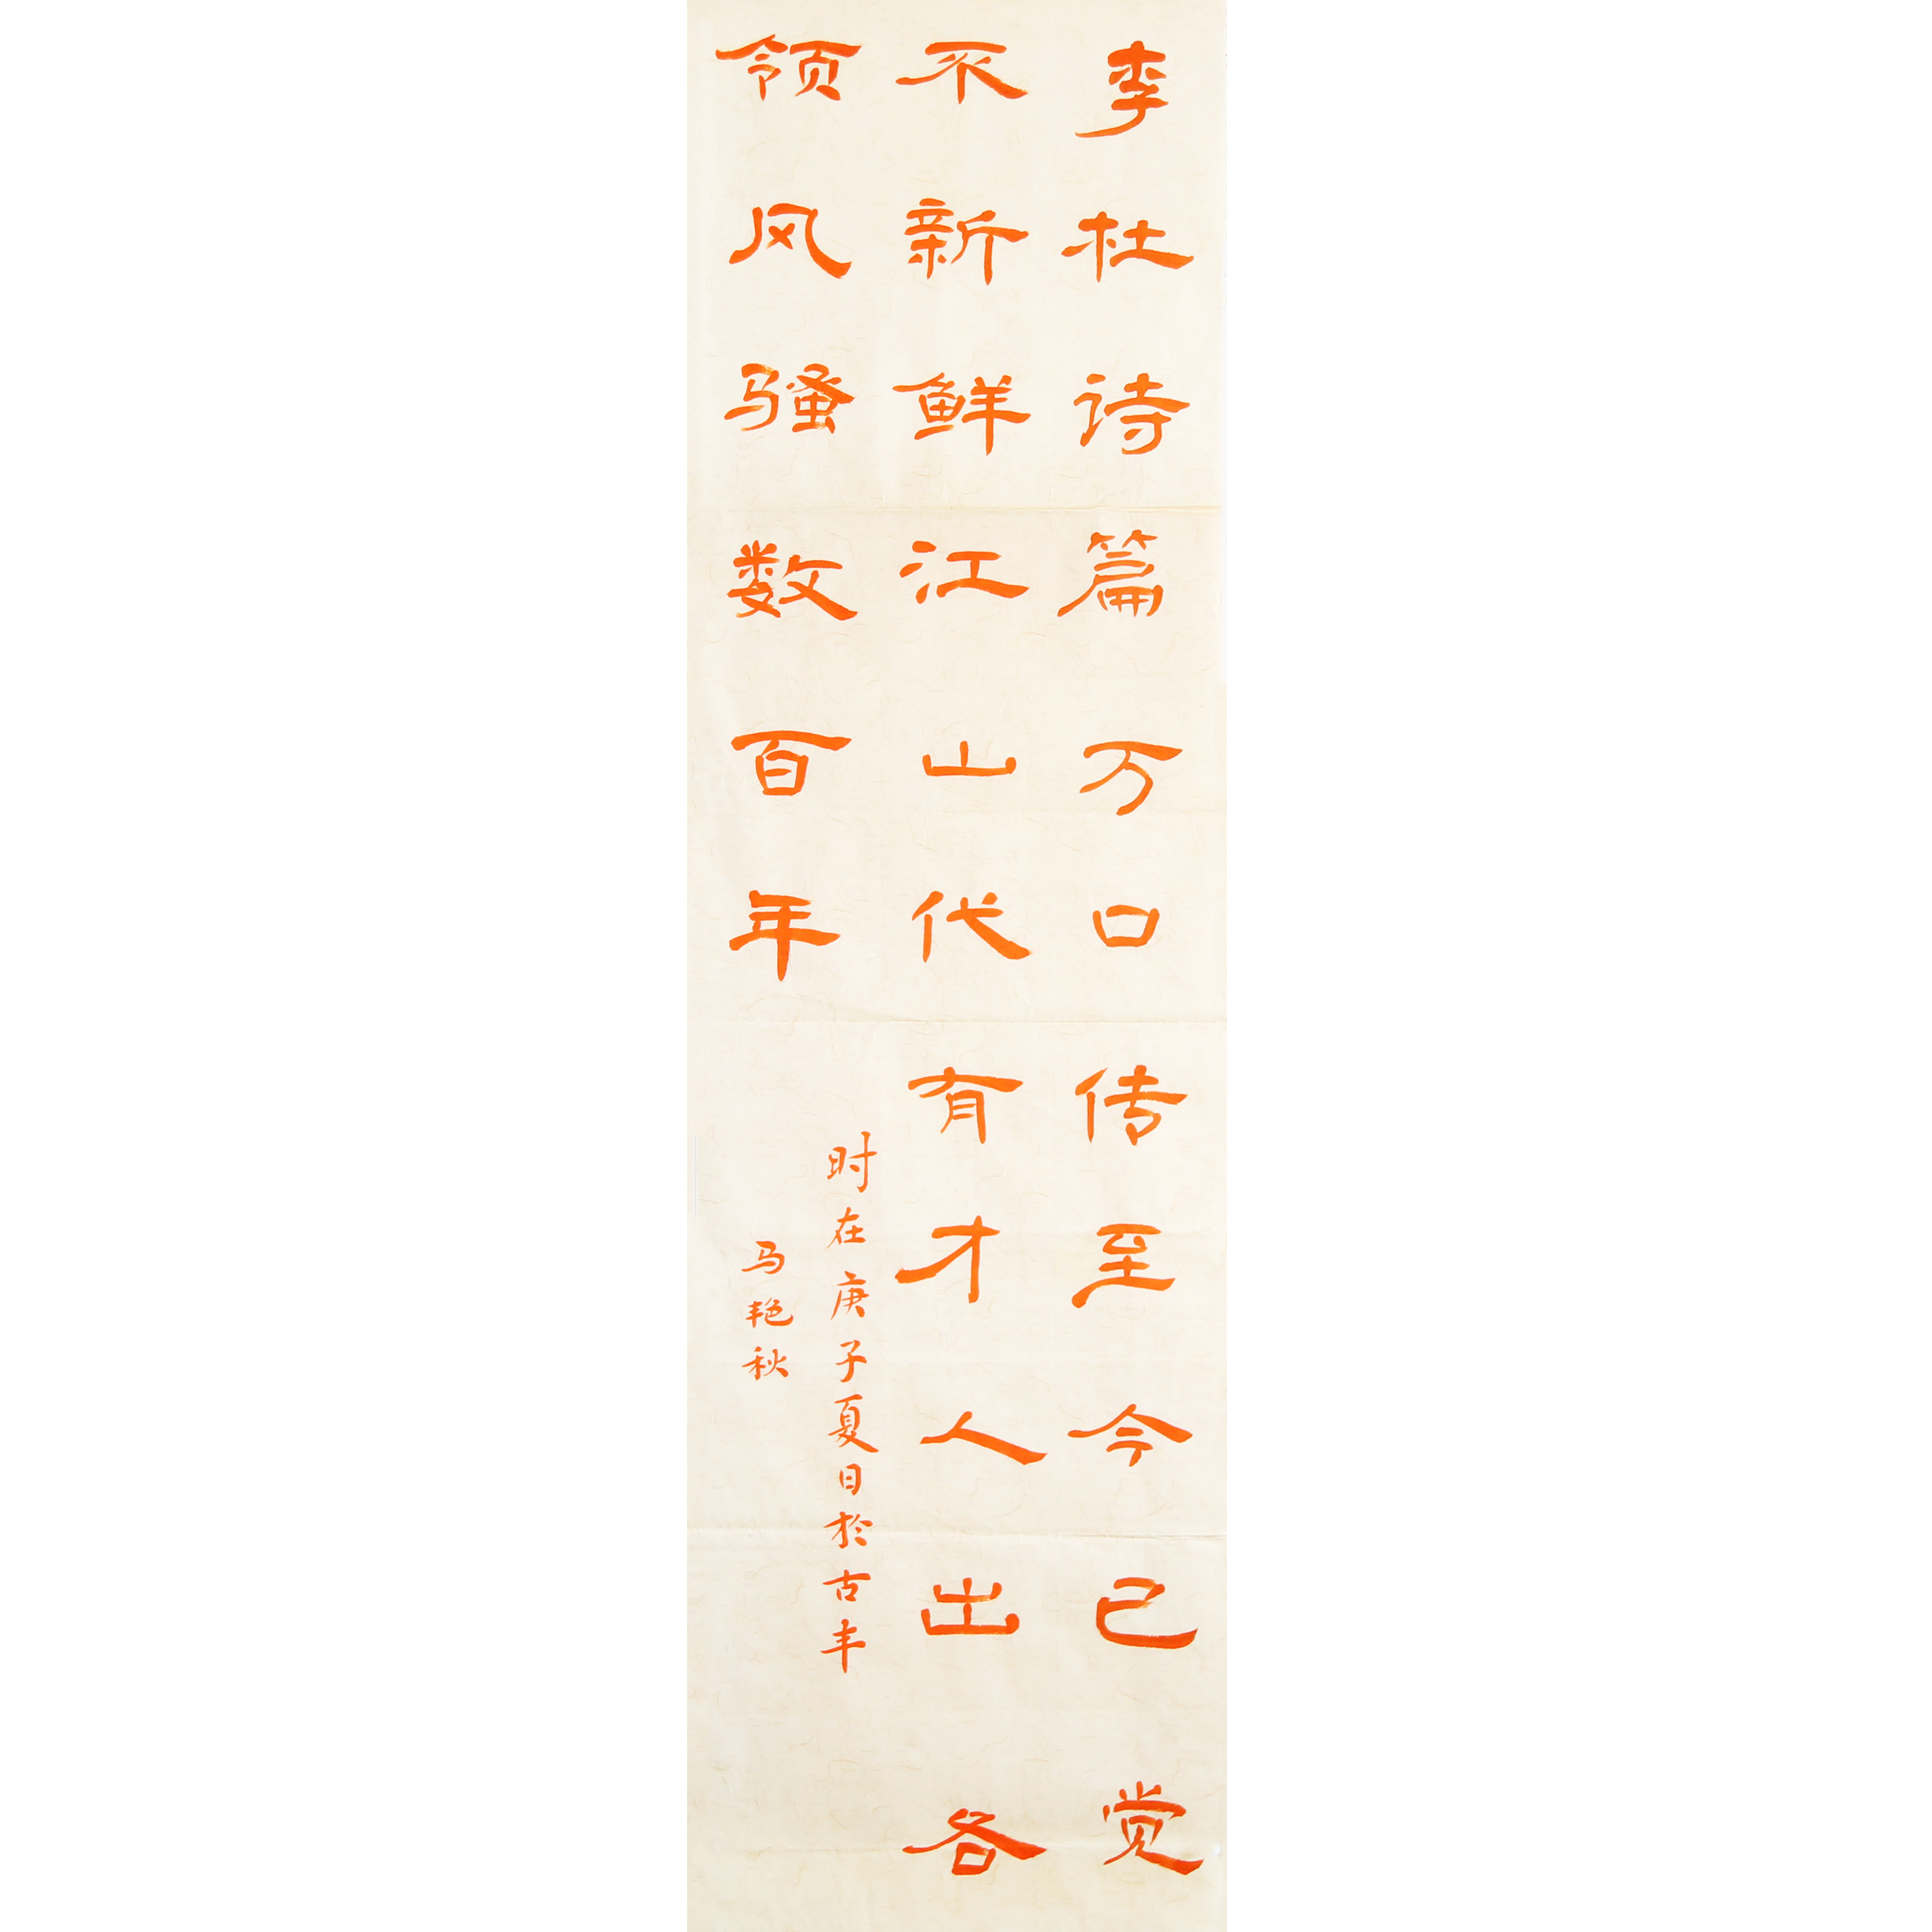 李杜诗篇万口传至今已觉
不新鲜江山代有才人出各
领风骚数百年
时在庚子夏日於古丰
马艳秋